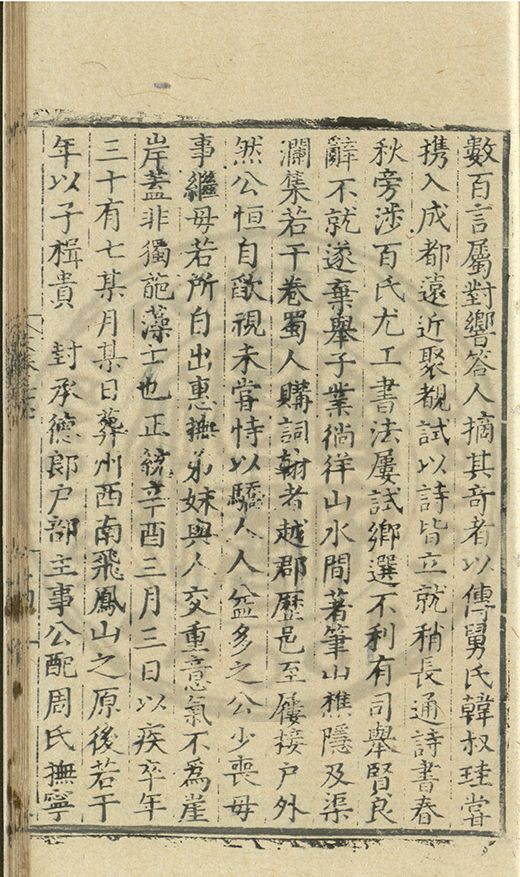 數百言屬對響答人摘其奇者以傳舅氏韓叔珪嘗
携入成都遠近聚觀試以詩皆立就稍長通詩書春
秋旁涉百氏尤工書法屢試鄉選不利有司舉賢良
辭不就遂棄舉子業徜徉山水間著筆山樵隱及渠
瀾集若干卷蜀人購詞翰者越郡歷邑至屨接户外
然公恒自歉視未嘗恃以驕人人益多之公少喪母
事繼母若所自出惠撫弟妹與人交重意氣不為崖
岸蓋非獨葩藻士也正統辛酉三月三日以疾卒年
三十有七某月某日葬州西南飛鳳山之原後若干
年以子楫貴　封承德郎户部主事公配周氏撫寧